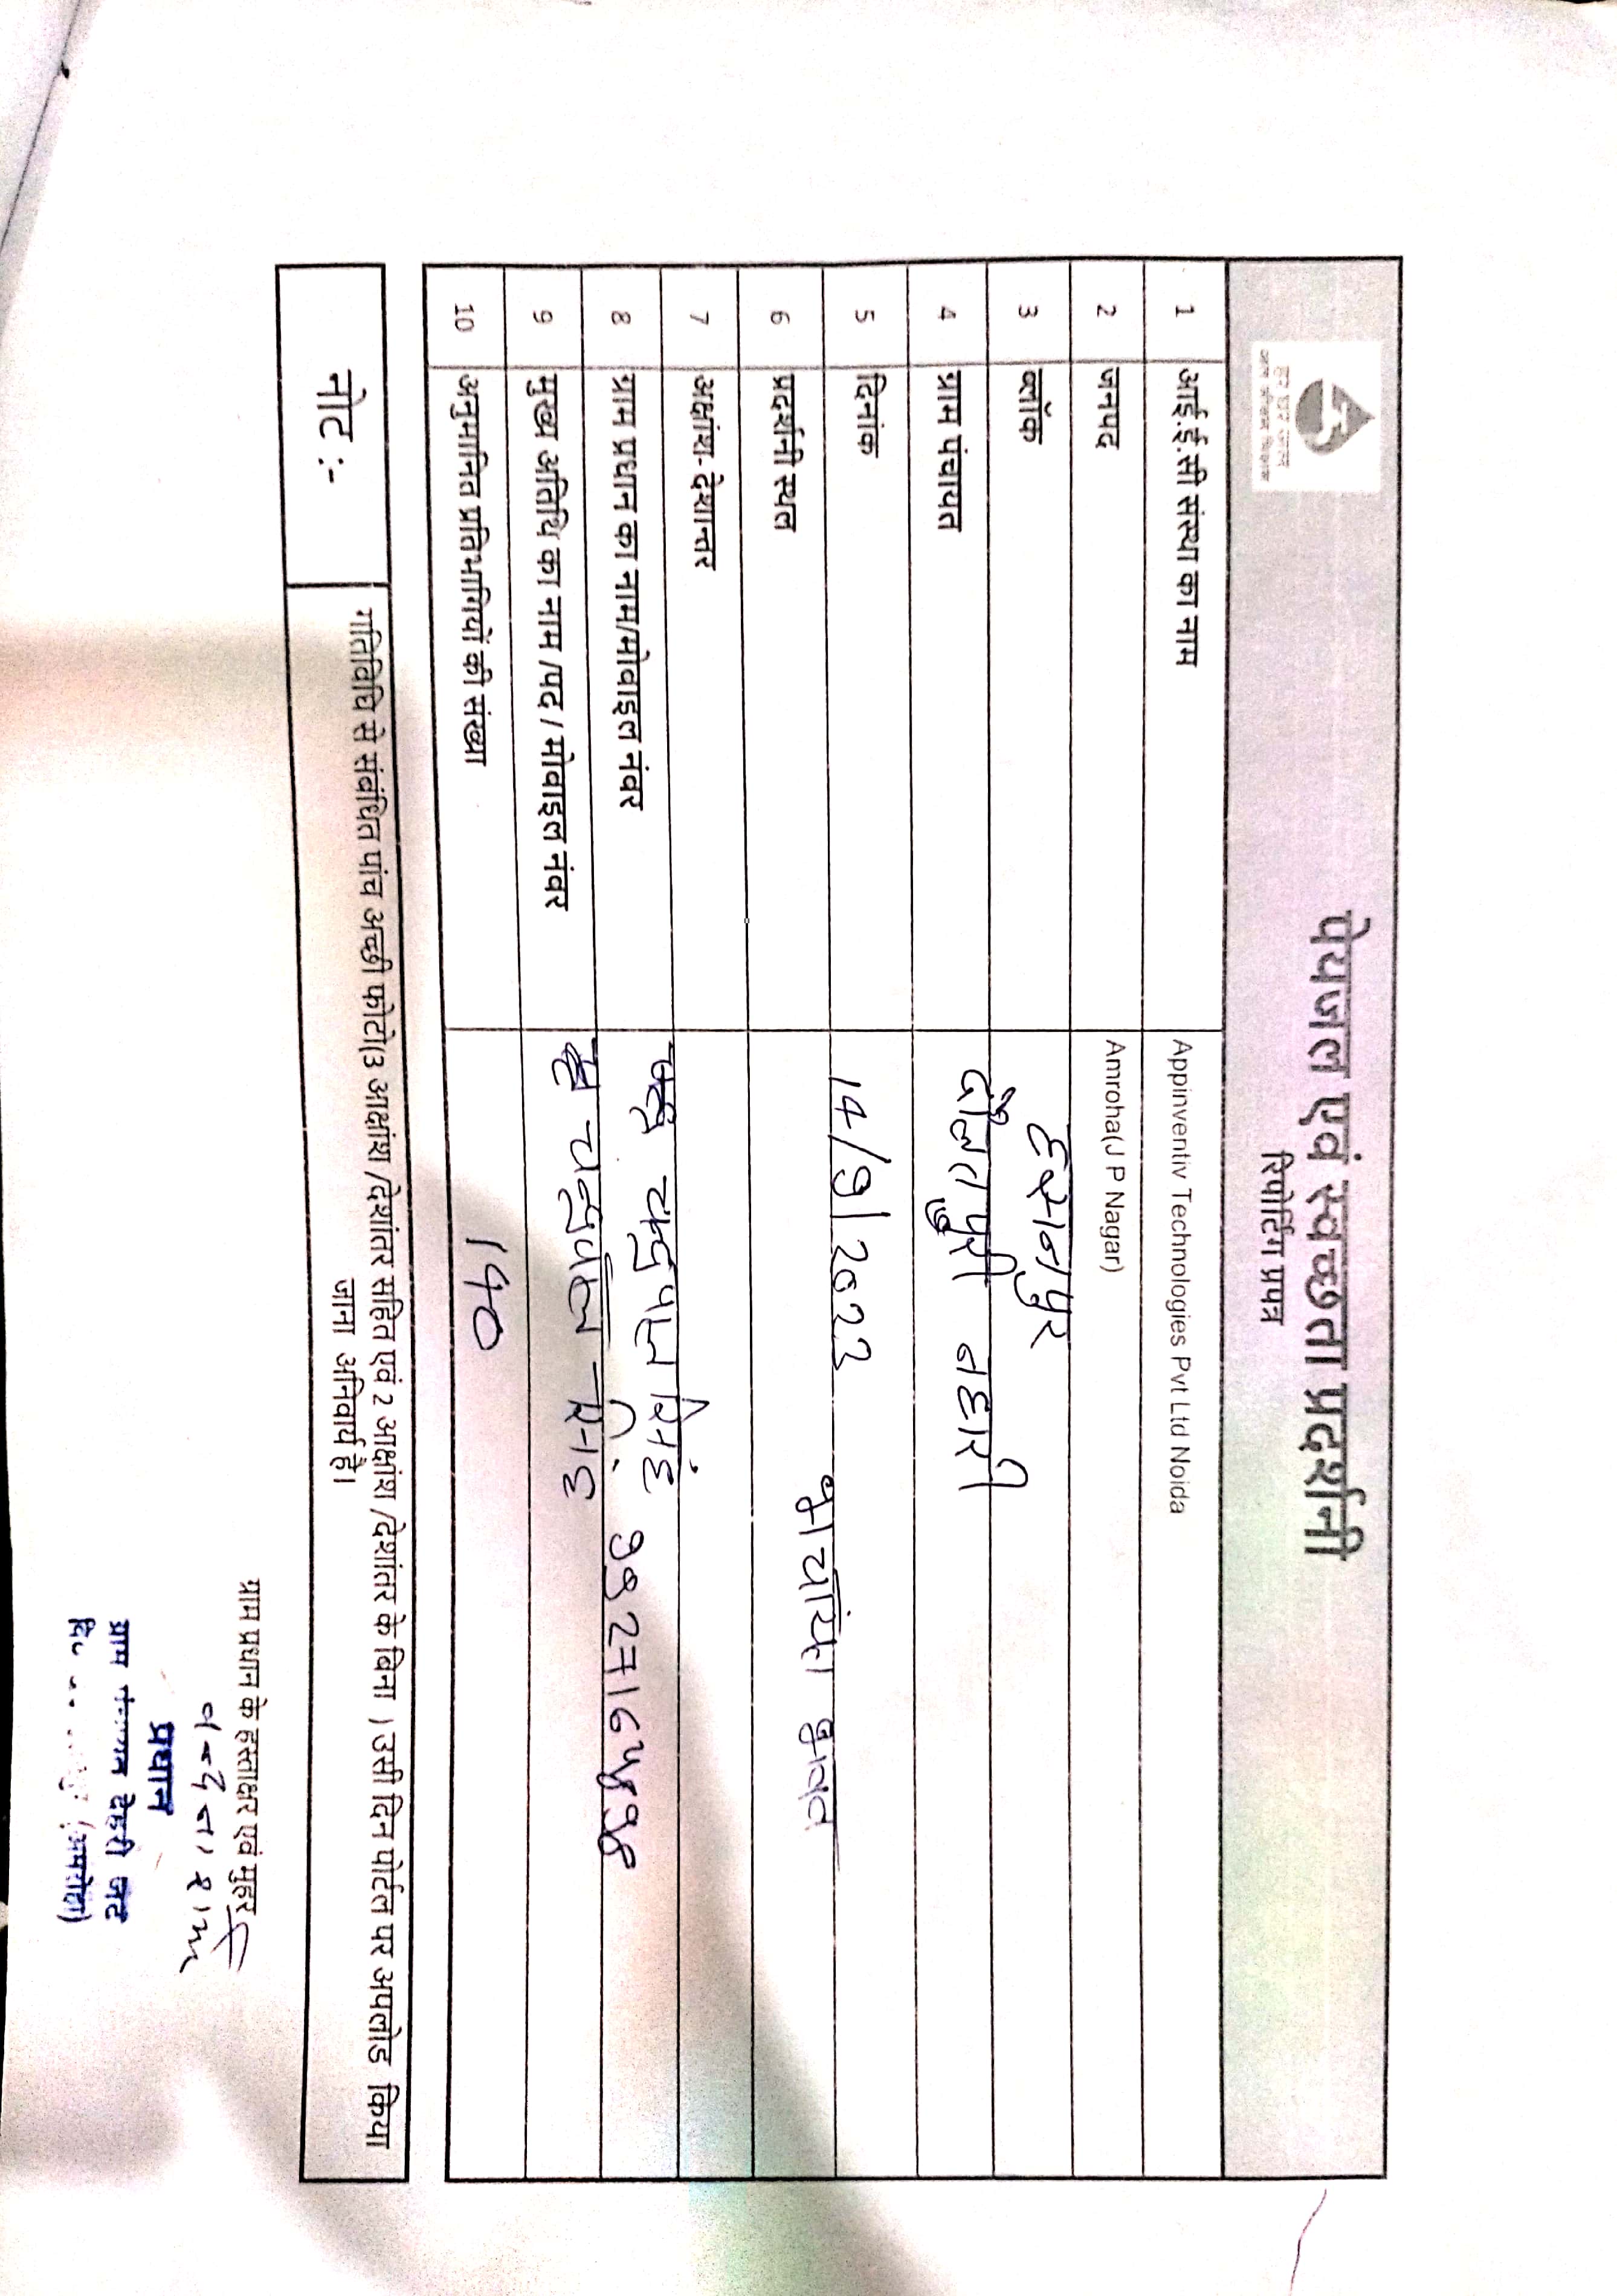 पेयजल एवं स्वच्छता प्रदर्शनी
रिपोर्टिंग प्रपत्र
1 आई.ई.सी संस्था का नाम Appinventiv Technologies Pvt Ltd Noida
2 जनपद Amroha(J P Nagar)
3 ब्लॉक हसनपुर
4 ग्राम पंचायत दौलतपुरी
5 दिनांक 14/9/2023
6 प्रदर्शनी स्थल
7 अक्षांश-देशान्तर
8 ग्राम प्रधान का नाम/मोबाइल नंबर चन्द्रपाल सिंह
9 मुख्य अतिथि का नाम /पद / मोबाइल नंबर
10 अनुमानित प्रतिभागियों की संख्या 140
नोट :-
गतिविधि से संबंधित पांच अच्छी फोटो(3 आक्षांश /देशांतर सहित एवं 2 आक्षांश /देशांतर के बिना ) उसी दिन पोर्टल पर अपलोड किया
जाना अनिवार्य है।
ग्राम प्रधान के हस्ताक्षर एवं मुहर
प्रधान
ग्राम देहरी जट
(अमरोहा)